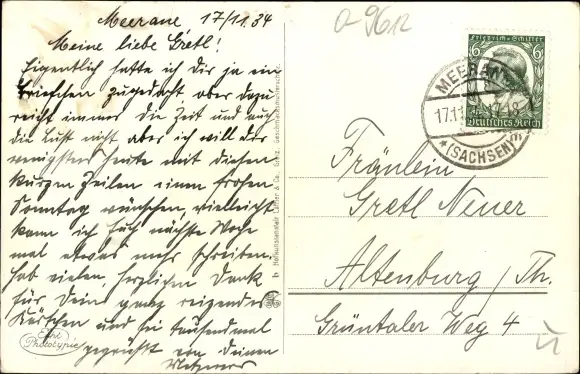 Meerane 17/11.34
Meine liebe Gretl!
Eigentlich hatte ich Dir ja ein
Briefchen zugedacht aber dazu
reicht immer die Zeit und auch
die Lust nicht aber ich will Dir
wenigstens heute mit diesen
kurzen Zeilen einen frohen
Sonntag wünschen, vielleicht
kann ich Euch nächste Woche
mal etwas mehr schreiben.
Hab vielen, herzlichen Dank
für Dein ganz reizendes
Kärtchen und sei tausendmal
gegrüßt von Deinen
Echt
Phototypie
a 9612
Friedrich v. Schiller
6
Deutsches Reich
MEERANE
17.11. 17-18
*(SACHSEN)
Fräulein
Gretl Neuer
Altenburg / Th.
Grüntaler Weg 4